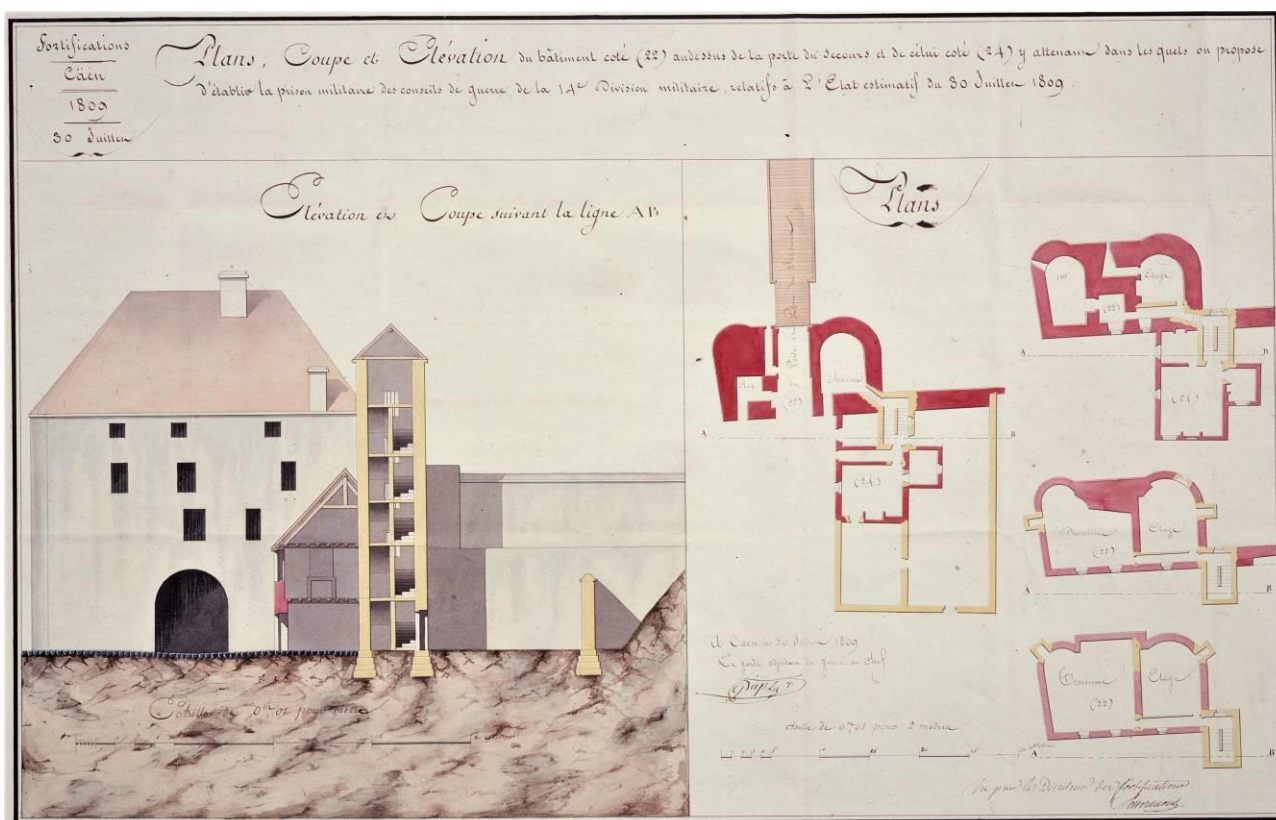 Fortifications
Cäen
1809
30 Juillet
Plans, Coupe et Elévation du bâtiment coté (22) audessus de la porte du secours et de célui coté (24) y attenant dans les quels on propose
d'établir la prison militaire des conseils de guerre de la 14e Division militaire, relatifs à L'Etat estimatif du 30 Juillet 1809.
Elévation et Coupe suivant la ligne AB
Echelle de 0m 01 pour mètre
Plans
Porte de Secours
(22)
(24)
A B
1er Etage
(22)
(24)
A B
Deuxième Etage
(22)
A B
Troisième Etage
(22)
A B
A Caen le 30 Juillet 1809
Le garde du génie en chef
Echelle de 0m 01 pour 2 mètres
Vu par le Directeur des fortifications